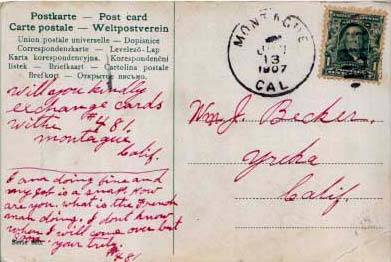 Postkarte — Post card
Carte postale — Weltpostverein
Union postale universelle — Dopisnice
Correspondenskarte — Levelező-Lap
Karta korespondencyjna. Korespondenční
listek — Briefkaart — Cartolina postale
Brefkort — Открытое письмо.
MONTAGUE
13
1907
CAL
will you kindly
exchange cards
with #481.
montague
Calif.
Wm. J. Becker.
Yreka
Calif.
I am doing fine and
my cot is a snap. How
are you. what is the French
man doing. I dont know
when I will come over but
your truly
#481